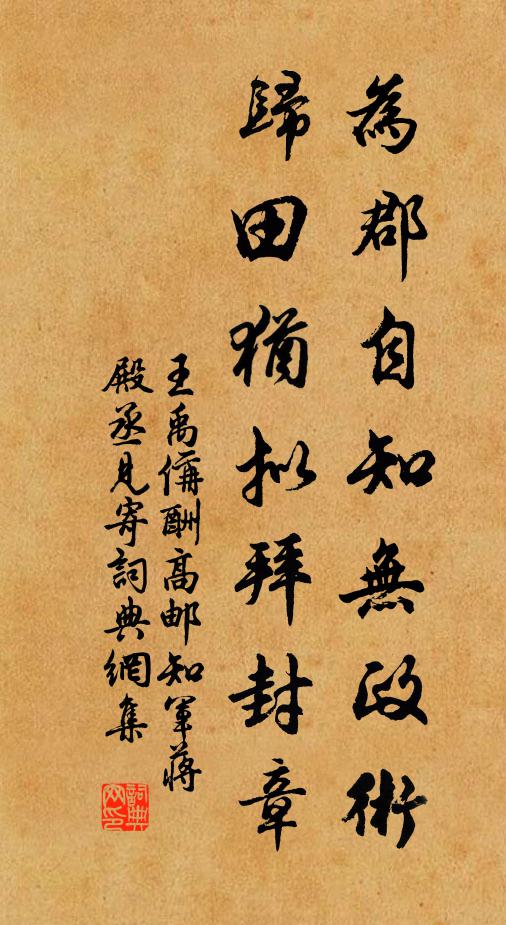 為郡自知無政術
歸田猶拟拜封章
王禹偁酬高邮知軍蔣
殿丞見寄詞典網集